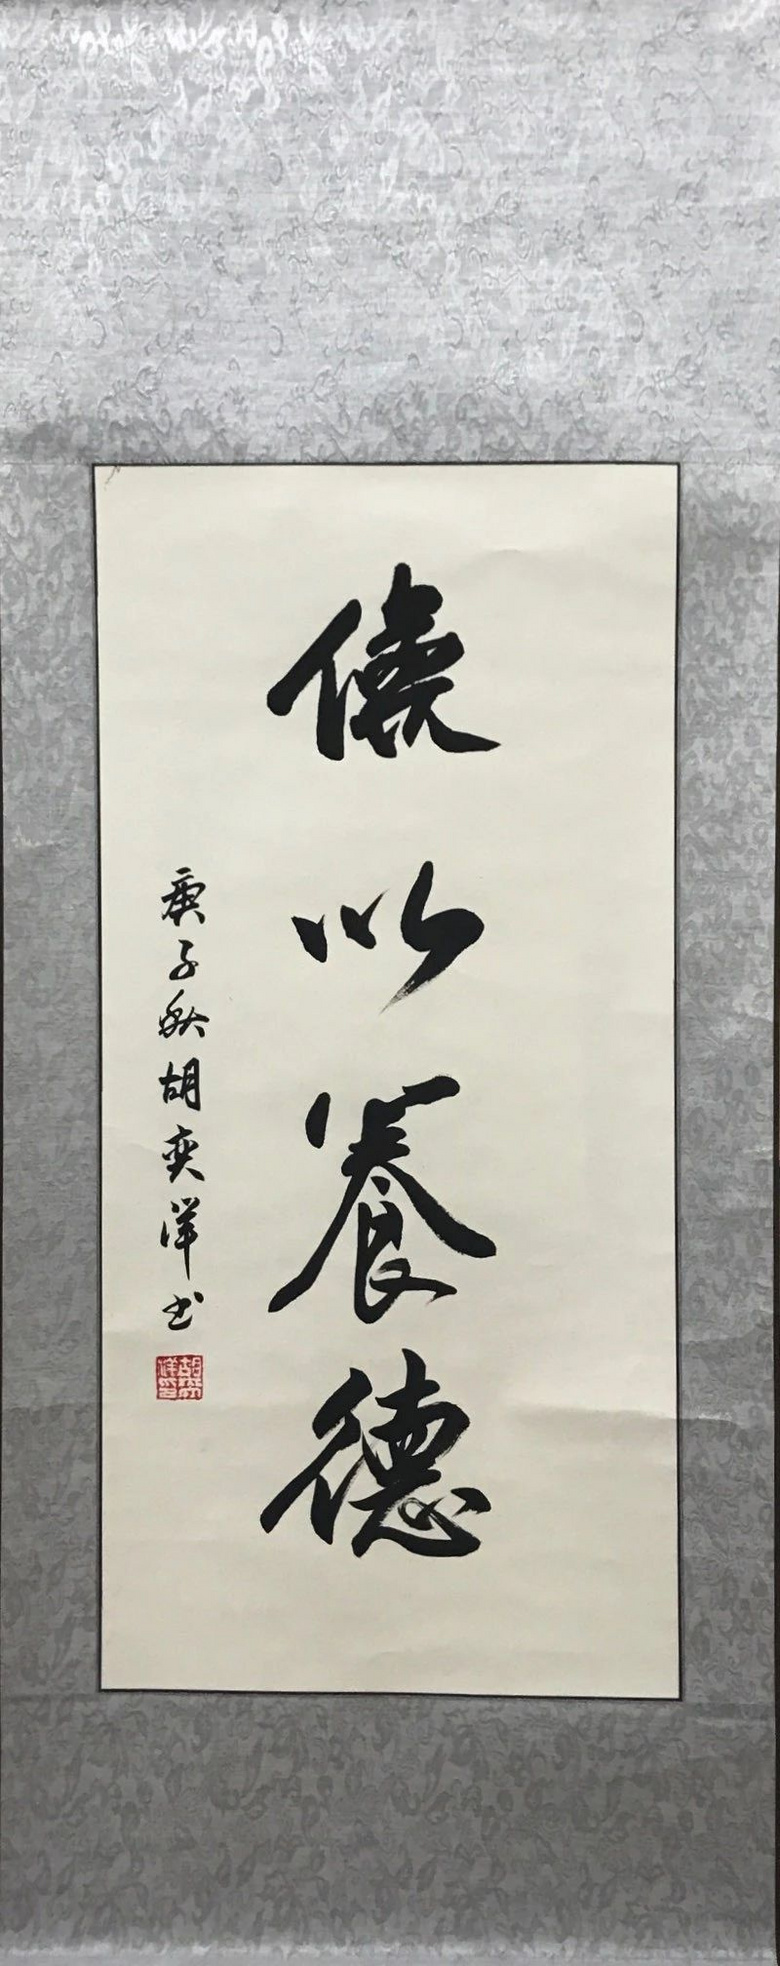 儉以養德
庚子秋胡奕洋书
胡奕洋印